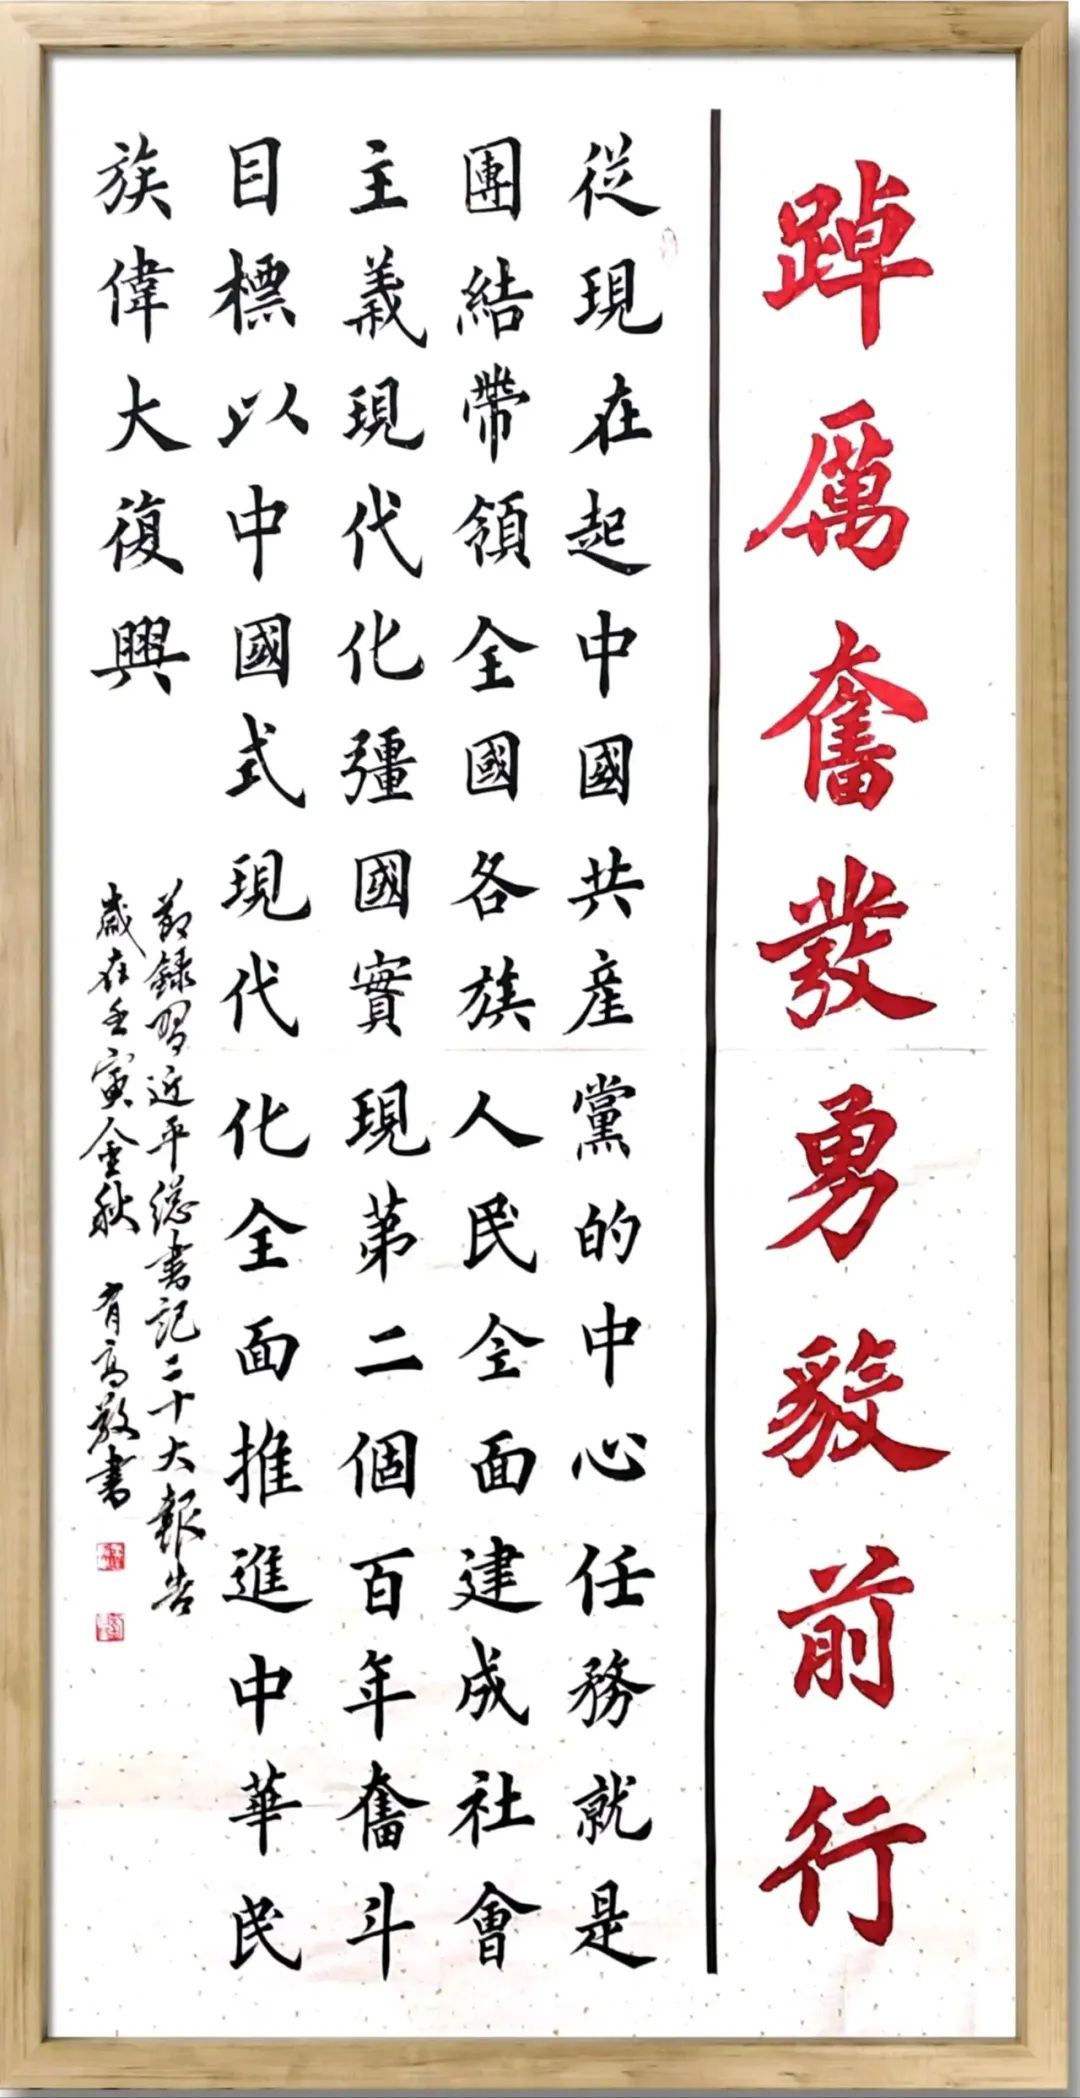 踔厲奮發勇毅前行
從現在起中國共産黨的中心任務就是
團結帶領全國各族人民全面建成社會
主義現代化彊國實現第二個百年奮斗
目標以中國式現代化全面推進中華民
族偉大復興
節錄習近平總書記二十大報告
歲在壬寅金秋 有高敬書